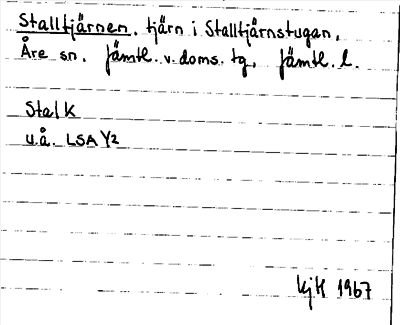 Stalltjärnen, tjärn i Stalltjärnstugan,
Åre sn. Jämtl. v. doms. tg, Jämtl. l.
Stal K
u.å. LSA Y2
KjH 1967